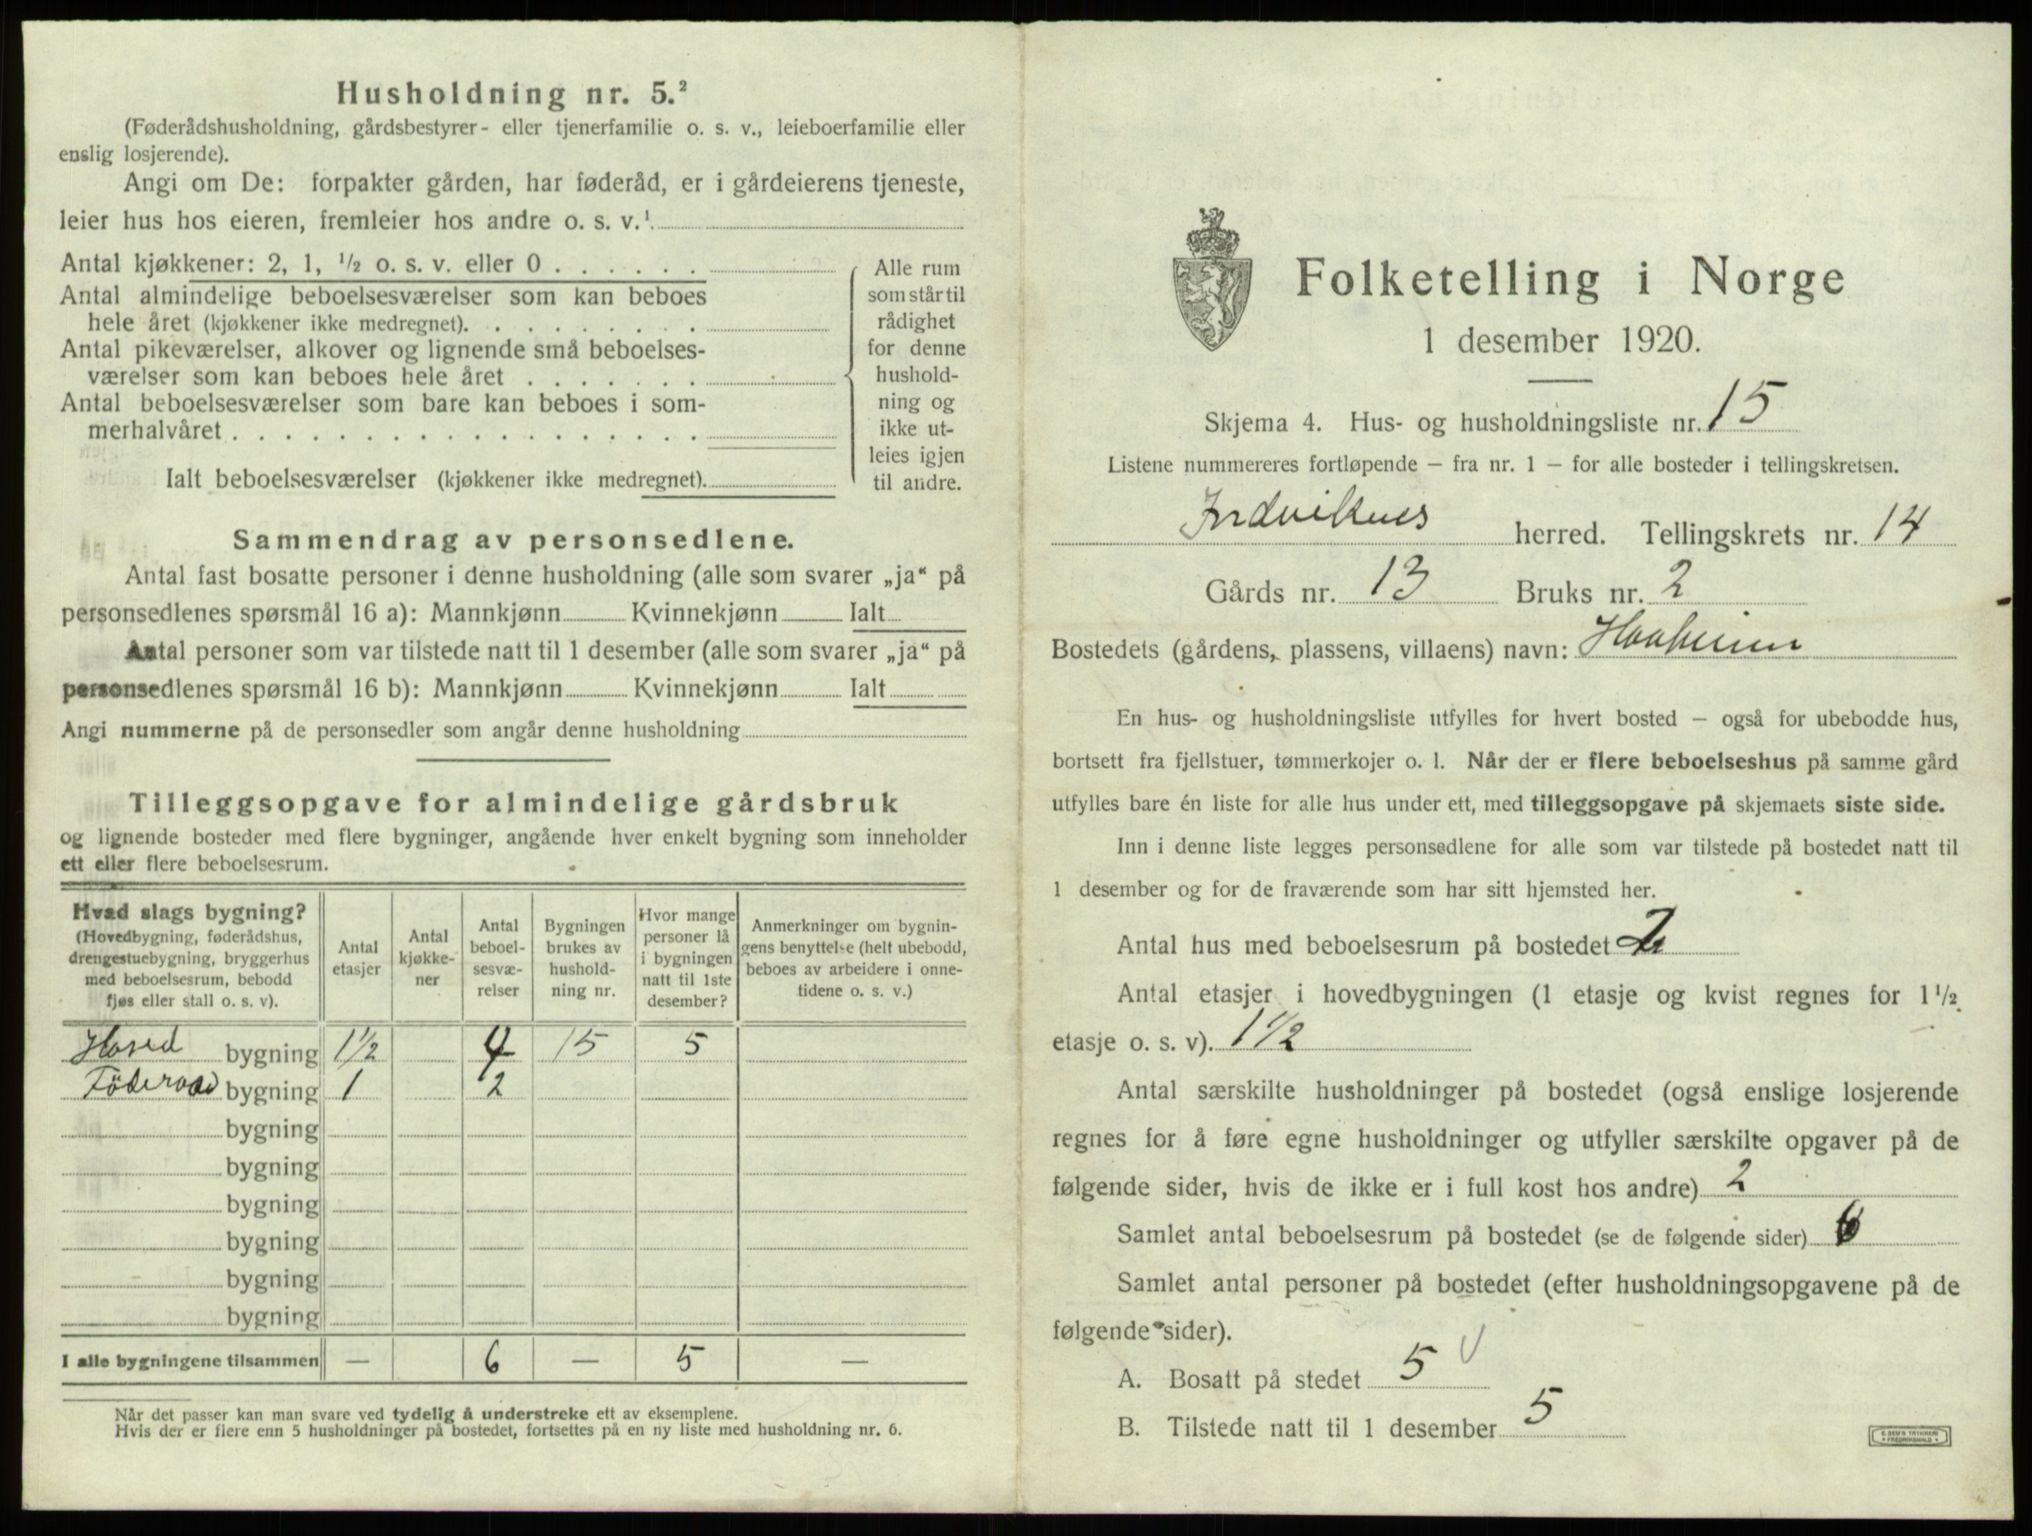 Husholdning nr. 5.²
(Føderådshusholdning, gårdsbestyrer- eller tjenerfamilie o. s. v., leieboerfamilie eller
enslig losjerende).
Angi om De: forpakter gården, har føderåd, er i gårdeierens tjeneste,
leier hus hos eieren, fremleier hos andre o. s. v.¹
Antal kjøkkener: 2, 1, ½ o. s. v. eller 0 . . . . . .
Antal almindelige beboelsesværelser som kan beboes
hele året (kjøkkener ikke medregnet). . . . . . . . .
Antal pikeværelser, alkover og lignende små beboelses-
værelser som kan beboes hele året . . . . . . .
Antal beboelsesværelser som bare kan beboes i som-
merhalvåret . . . . . . . . . . . . . . . . .
Ialt beboelsesværelser (kjøkkener ikke medregnet).
Alle rum
som står til
rådighet
for denne
hushold-
ning og
ikke ut-
leies igjen
til andre.
Sammendrag av personsedlene.
Antal fast bosatte personer i denne husholdning (alle som svarer „ja“ på
personsedlenes spørsmål 16 a): Mannkjønn Kvinnekjønn Ialt
Antal personer som var tilstede natt til 1 desember (alle som svarer „ja“ på
personsedlenes spørsmål 16 b): Mannkjønn Kvinnekjønn Ialt
Angi nummerne på de personsedler som angår denne husholdning
Tilleggsopgave for almindelige gårdsbruk
og lignende bosteder med flere bygninger, angående hver enkelt bygning som inneholder
ett eller flere beboelsesrum.
Hvad slags bygning?
(Hovedbygning, føderådshus,
drengestuebygning, bryggerhus
med beboelsesrum, bebodd
fjøs eller stall o. s. v).
Antal
etasjer
Antal
kjøkke-
ner
Antal
beboel-
sesvæ-
relser
Bygningen
brukes av
hushold-
ning nr.
Hvor mange
personer lå
i bygningen
natt til 1ste
desember?
Anmerkninger om bygnin-
gens benyttelse (helt ubebodd,
beboes av arbeidere i onne-
tidene o. s. v.)
Hoved bygning 1½ 4 15 5
Föderaad bygning 1 2
bygning
bygning
bygning
bygning
bygning
bygning
I alle bygningene tilsammen — 6 — 5 —
Når det passer kan man svare ved tydelig å understreke ett av eksemplene.
Hvis der er flere enn 5 husholdninger på bostedet, fortsettes på en ny liste med husholdning nr. 6.
Folketelling i Norge
1 desember 1920.
Skjema 4. Hus- og husholdningsliste nr. 15
Listene nummereres fortløpende — fra nr. 1 — for alle bosteder i tellingskretsen.
Indvikens herred. Tellingskrets nr. 14
Gårds nr. 13 Bruks nr. 2
Bostedets (gårdens, plassens, villaens) navn:
En hus- og husholdningsliste utfylles for hvert bosted — også for ubebodde hus,
bortsett fra fjellstuer, tømmerkojer o. l. Når der er flere beboelseshus på samme gård
utfylles bare én liste for alle hus under ett, med tilleggsopgave på skjemaets siste side.
Inn i denne liste legges personsedlene for alle som var tilstede på bostedet natt til
1 desember og for de fraværende som har sitt hjemsted her.
Antal hus med beboelsesrum på bostedet 2
Antal etasjer i hovedbygningen (1 etasje og kvist regnes for 1½
etasje o. s. v). 1½
Antal særskilte husholdninger på bostedet (også enslige losjerende
regnes for å føre egne husholdninger og utfyller særskilte opgaver på de
følgende sider, hvis de ikke er i full kost hos andre) 2
Samlet antal beboelsesrum på bostedet (se de følgende sider) 6
Samlet antal personer på bostedet (efter husholdningsopgavene på de
følgende sider).
A. Bosatt på stedet 5 √
B. Tilstede natt til 1 desember 5